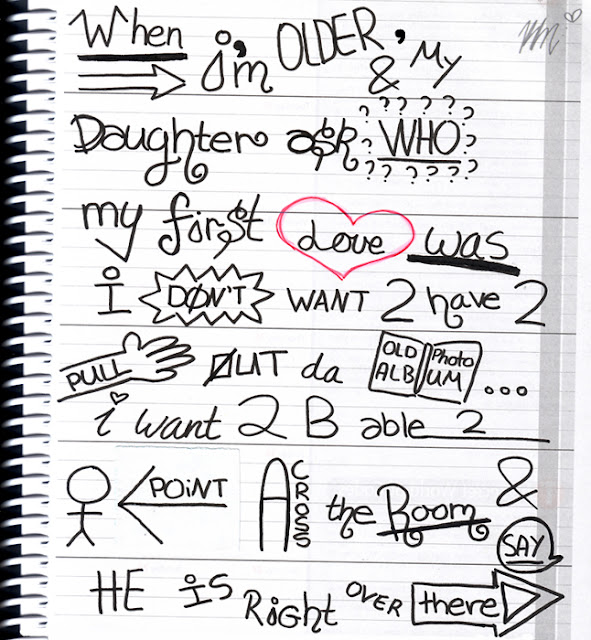 When i'm OLDER, & My
Daughter ask ????? WHO ?????
my first Love was
I DØN'T WANT 2 have 2
PULL OUT da OLD Photo ALBUM ...
i want 2 B able 2
POiNT ACROSS the Room & SAY
HE iS Right OVER there